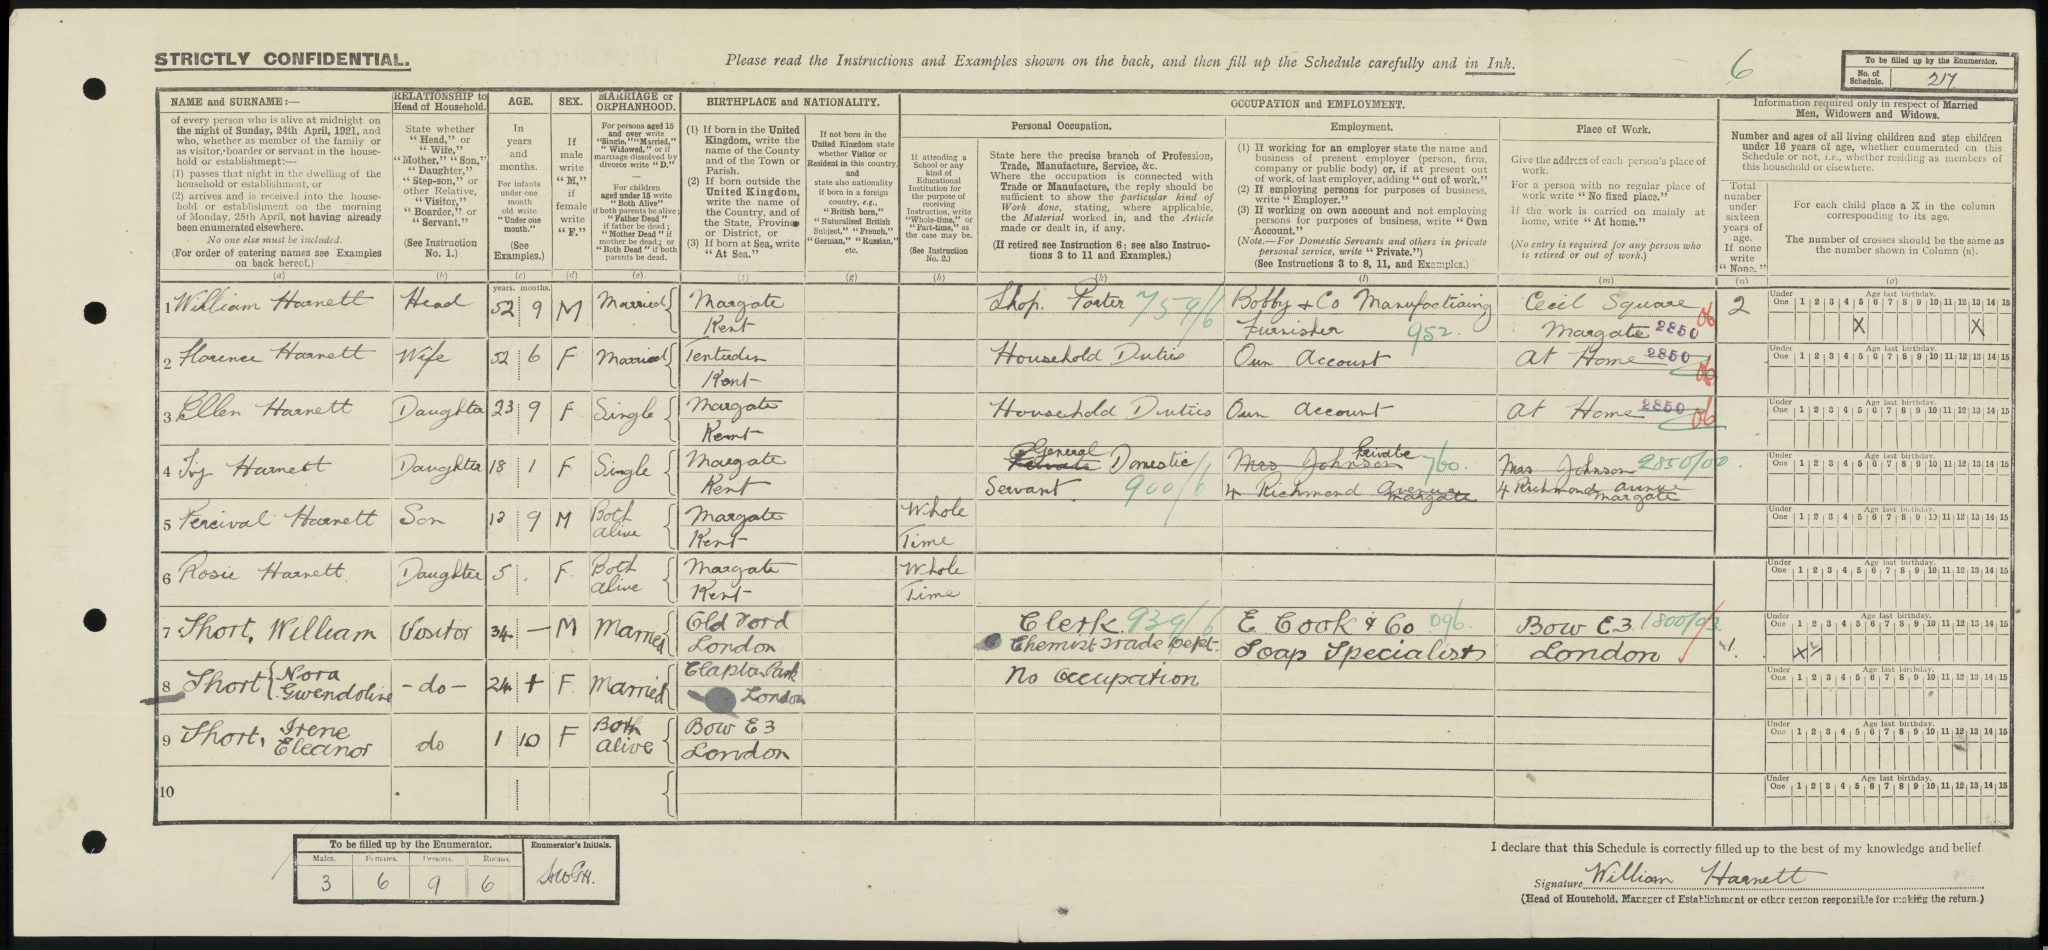 STRICTLY CONFIDENTIAL.
Please read the Instructions and Examples shown on the back, and then fill up the Schedule carefully and in Ink.
6
To be filled up by the Enumerator.
No. of Schedule. 217
NAME and SURNAME:—
of every person who is alive at midnight on
the night of Sunday, 24th April, 1921, and
who, whether as member of the family or
as visitor, boarder or servant in the house-
hold or establishment:—
(1) passes that night in the dwelling of the
household or establishment, or
(2) arrives and is received into the house-
hold or establishment on the morning
of Monday, 25th April, not having already
been enumerated elsewhere.
No one else must be included.
(For order of entering names see Examples
on back hereof.)
(a)
RELATIONSHIP to
Head of Household.
State whether
"Head," or
"Wife,"
"Mother," "Son,"
"Daughter,"
"Step-son," or
other Relative,
"Visitor,"
"Boarder," or
"Servant."
(See Instruction
No. 1.)
(b)
AGE.
In
years
and
months.
For infants
under one
month
old write
"Under one
month."
(See
Examples.)
(c)
years. months.
SEX.
If
male
write
"M,"
if
female
write
"F."
(d)
MARRIAGE or
ORPHANHOOD.
For persons aged 15
and over write
"Single," "Married,"
"Widowed," or if
marriage dissolved by
divorce write "D."
For children
aged under 15 write
"Both Alive"
if both parents be alive;
"Father Dead"
if father be dead;
"Mother Dead" if
mother be dead; or
"Both Dead" if both
parents be dead.
(e)
BIRTHPLACE and NATIONALITY.
(1) If born in the United
Kingdom, write the
name of the County
and of the Town or
Parish.
(2) If born outside the
United Kingdom,
write the name of
the Country, and of
the State, Province
or District, or
(3) If born at Sea, write
"At Sea."
(f)
If not born in the
United Kingdom state
whether Visitor or
Resident in this country,
and
state also nationality
if born in a foreign
country, e.g.,
"British born,"
"Naturalised British
Subject," "French,"
"German," "Russian,"
etc.
(g)
OCCUPATION and EMPLOYMENT.
If attending a
School or any
kind of
Educational
Institution for
the purpose of
receiving
Instruction, write
"Whole-time," or
"Part-time," as
the case may be.
(See Instruction
No. 2.)
(h)
Personal Occupation.
State here the precise branch of Profession,
Trade, Manufacture, Service, &c.
Where the occupation is connected with
Trade or Manufacture, the reply should be
sufficient to show the particular kind of
Work done, stating, where applicable,
the Material worked in, and the Article
made or dealt in, if any.
(If retired see Instruction 6: see also Instruc-
tions 3 to 11 and Examples.)
(k)
Employment.
(1) If working for an employer state the name and
business of present employer (person, firm,
company or public body) or, if at present out
of work, of last employer, adding "out of work."
(2) If employing persons for purposes of business,
write "Employer."
(3) If working on own account and not employing
persons for purposes of business, write "Own
Account."
(Note.—For Domestic Servants and others in private
personal service, write "Private.")
(See Instructions 3 to 8, 11, and Examples.)
(l)
Place of Work.
Give the address of each person's place of
work.
For a person with no regular place of
work write "No fixed place."
If the work is carried on mainly at
home, write "At home."
(No entry is required for any person who
is retired or out of work.)
(m)
Information required only in respect of Married
Men, Widowers and Widows.
Number and ages of all living children and step children
under 16 years of age, whether enumerated on this
Schedule or not, i.e., whether residing as members of
this household or elsewhere.
Total
number
under
sixteen
years of
age.
If none
write
"None."
(n)
For each child place a X in the column
corresponding to its age.
The number of crosses should be the same as
the number shown in Column (n).
(o)
1 William Harnett Head 52 9 M Married Margate Shop. Porter 759/6 Bobby & Co Manufactiring Cecil Square 06 2
Kent Furnisher 952. Margate 2850
Under One Age last birthday. 1 2 3 4 5 6 7 8 9 10 11 12 13 14 15
X X
2 Florence Harnett Wife 52 6 F Married Tenterden Household Duties Own Account At Home 2850 06
Kent
Under One Age last birthday. 1 2 3 4 5 6 7 8 9 10 11 12 13 14 15
3 Ellen Harnett Daughter 23 9 F Single Margate Household Duties Own Account At Home 2850 06
Kent
Under One Age last birthday. 1 2 3 4 5 6 7 8 9 10 11 12 13 14 15
4 Ivy Harnett Daughter 18 1 F Single Margate General Private Domestic Mrs Johnson Private 760. Mrs Johnson 2850/00.
Kent Servant 900/6 4 Richmond Avenue Margate 4 Richmond Avenue Margate
Under One Age last birthday. 1 2 3 4 5 6 7 8 9 10 11 12 13 14 15
5 Percival Harnett Son 13 9 M Both alive Margate Whole
Kent Time
Under One Age last birthday. 1 2 3 4 5 6 7 8 9 10 11 12 13 14 15
6 Rosie Harnett Daughter 5 . F Both alive Margate Whole
Kent Time
Under One Age last birthday. 1 2 3 4 5 6 7 8 9 10 11 12 13 14 15
7 Short, William Visitor 34 — M Married Old Ford Clerk 939/6 E. Cook & Co 096. Bow E3 1800/03 1.
London Chemist Trade Dept. Soap Specialists London
Under One Age last birthday. 1 2 3 4 5 6 7 8 9 10 11 12 13 14 15
X
8 Short { Nora Gwendoline - do - 24 + F Married Clapton Park No Occupation
London
Under One Age last birthday. 1 2 3 4 5 6 7 8 9 10 11 12 13 14 15
9 Short, Irene Eleanor do 1 10 F Both alive Bow E3
London
Under One Age last birthday. 1 2 3 4 5 6 7 8 9 10 11 12 13 14 15
10
Under One Age last birthday. 1 2 3 4 5 6 7 8 9 10 11 12 13 14 15
To be filled up by the Enumerator.
Males. Females. Persons. Rooms.
3 6 9 6
Enumerator's Initials.
I declare that this Schedule is correctly filled up to the best of my knowledge and belief.
Signature William Harnett
(Head of Household, Manager of Establishment or other person responsible for making the return.)